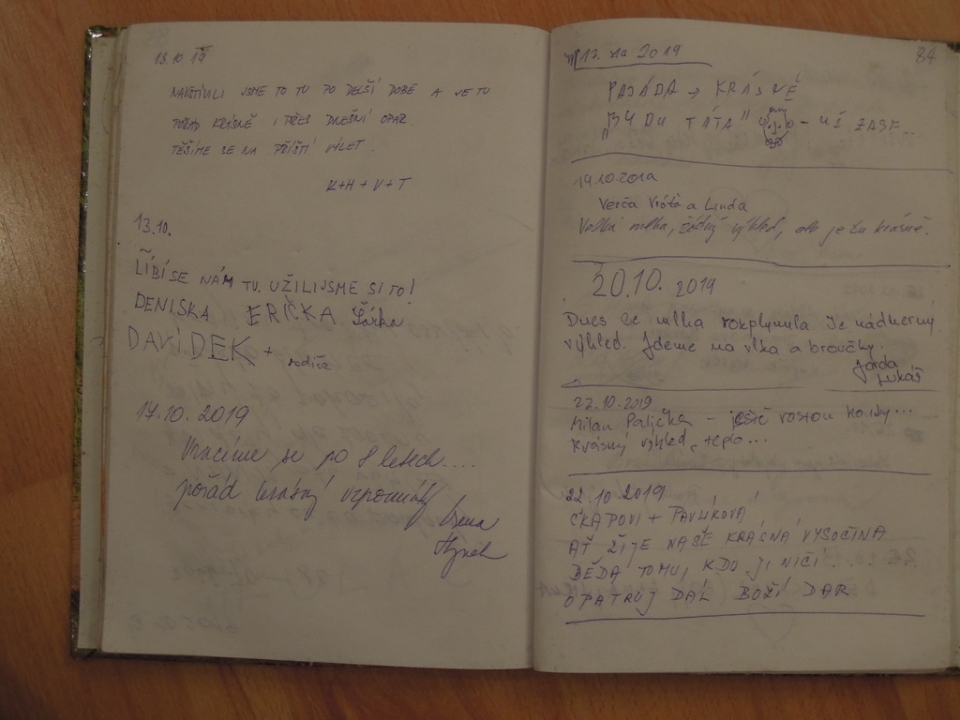 13.10.19
NAVŠTÍVILI JSME TO TU PO DELŠÍ DOBĚ A JE TU
POŘÁD KRÁSNĚ I PŘES DNEŠNÍ OPAR.
TĚŠÍME SE NA PŘÍŠTÍ VÝLET.
K+H+V+T
13.10.
LÍBÍ SE NÁM TU. UŽILI JSME SI TO!
DENISKA ERIČKA Šárka
DAVÍDEK + rodiče
17.10.2019
Vracíme se po 8 letech....
pořád krásný vzpomínky
Hynek
2019
84
PAJÁDA → KRÁSNÉ
"BUDU TÁTA"
19.10.2019
Verča a Linda
Velká mlha, žádný výhled, ale je tu krásně.
20.10. 2019
Dnes se mlha rozplynula. Je nádherný
výhled. Jdeme na vlka a broučky.
Jarda
Lukáš
22.10.2019
Milan Palička - ještě rostou houby...
Krásný výhled, teplo...
22.10 2019
ČKAPOVI + PAVLÍKOVÁ
AŤ ŽIJE NAŠE KRÁSNÁ VYSOČINA
BĚDA TOMU, KDO JI NIČÍ.
OPATRUJ DÁL BOŽÍ DAR